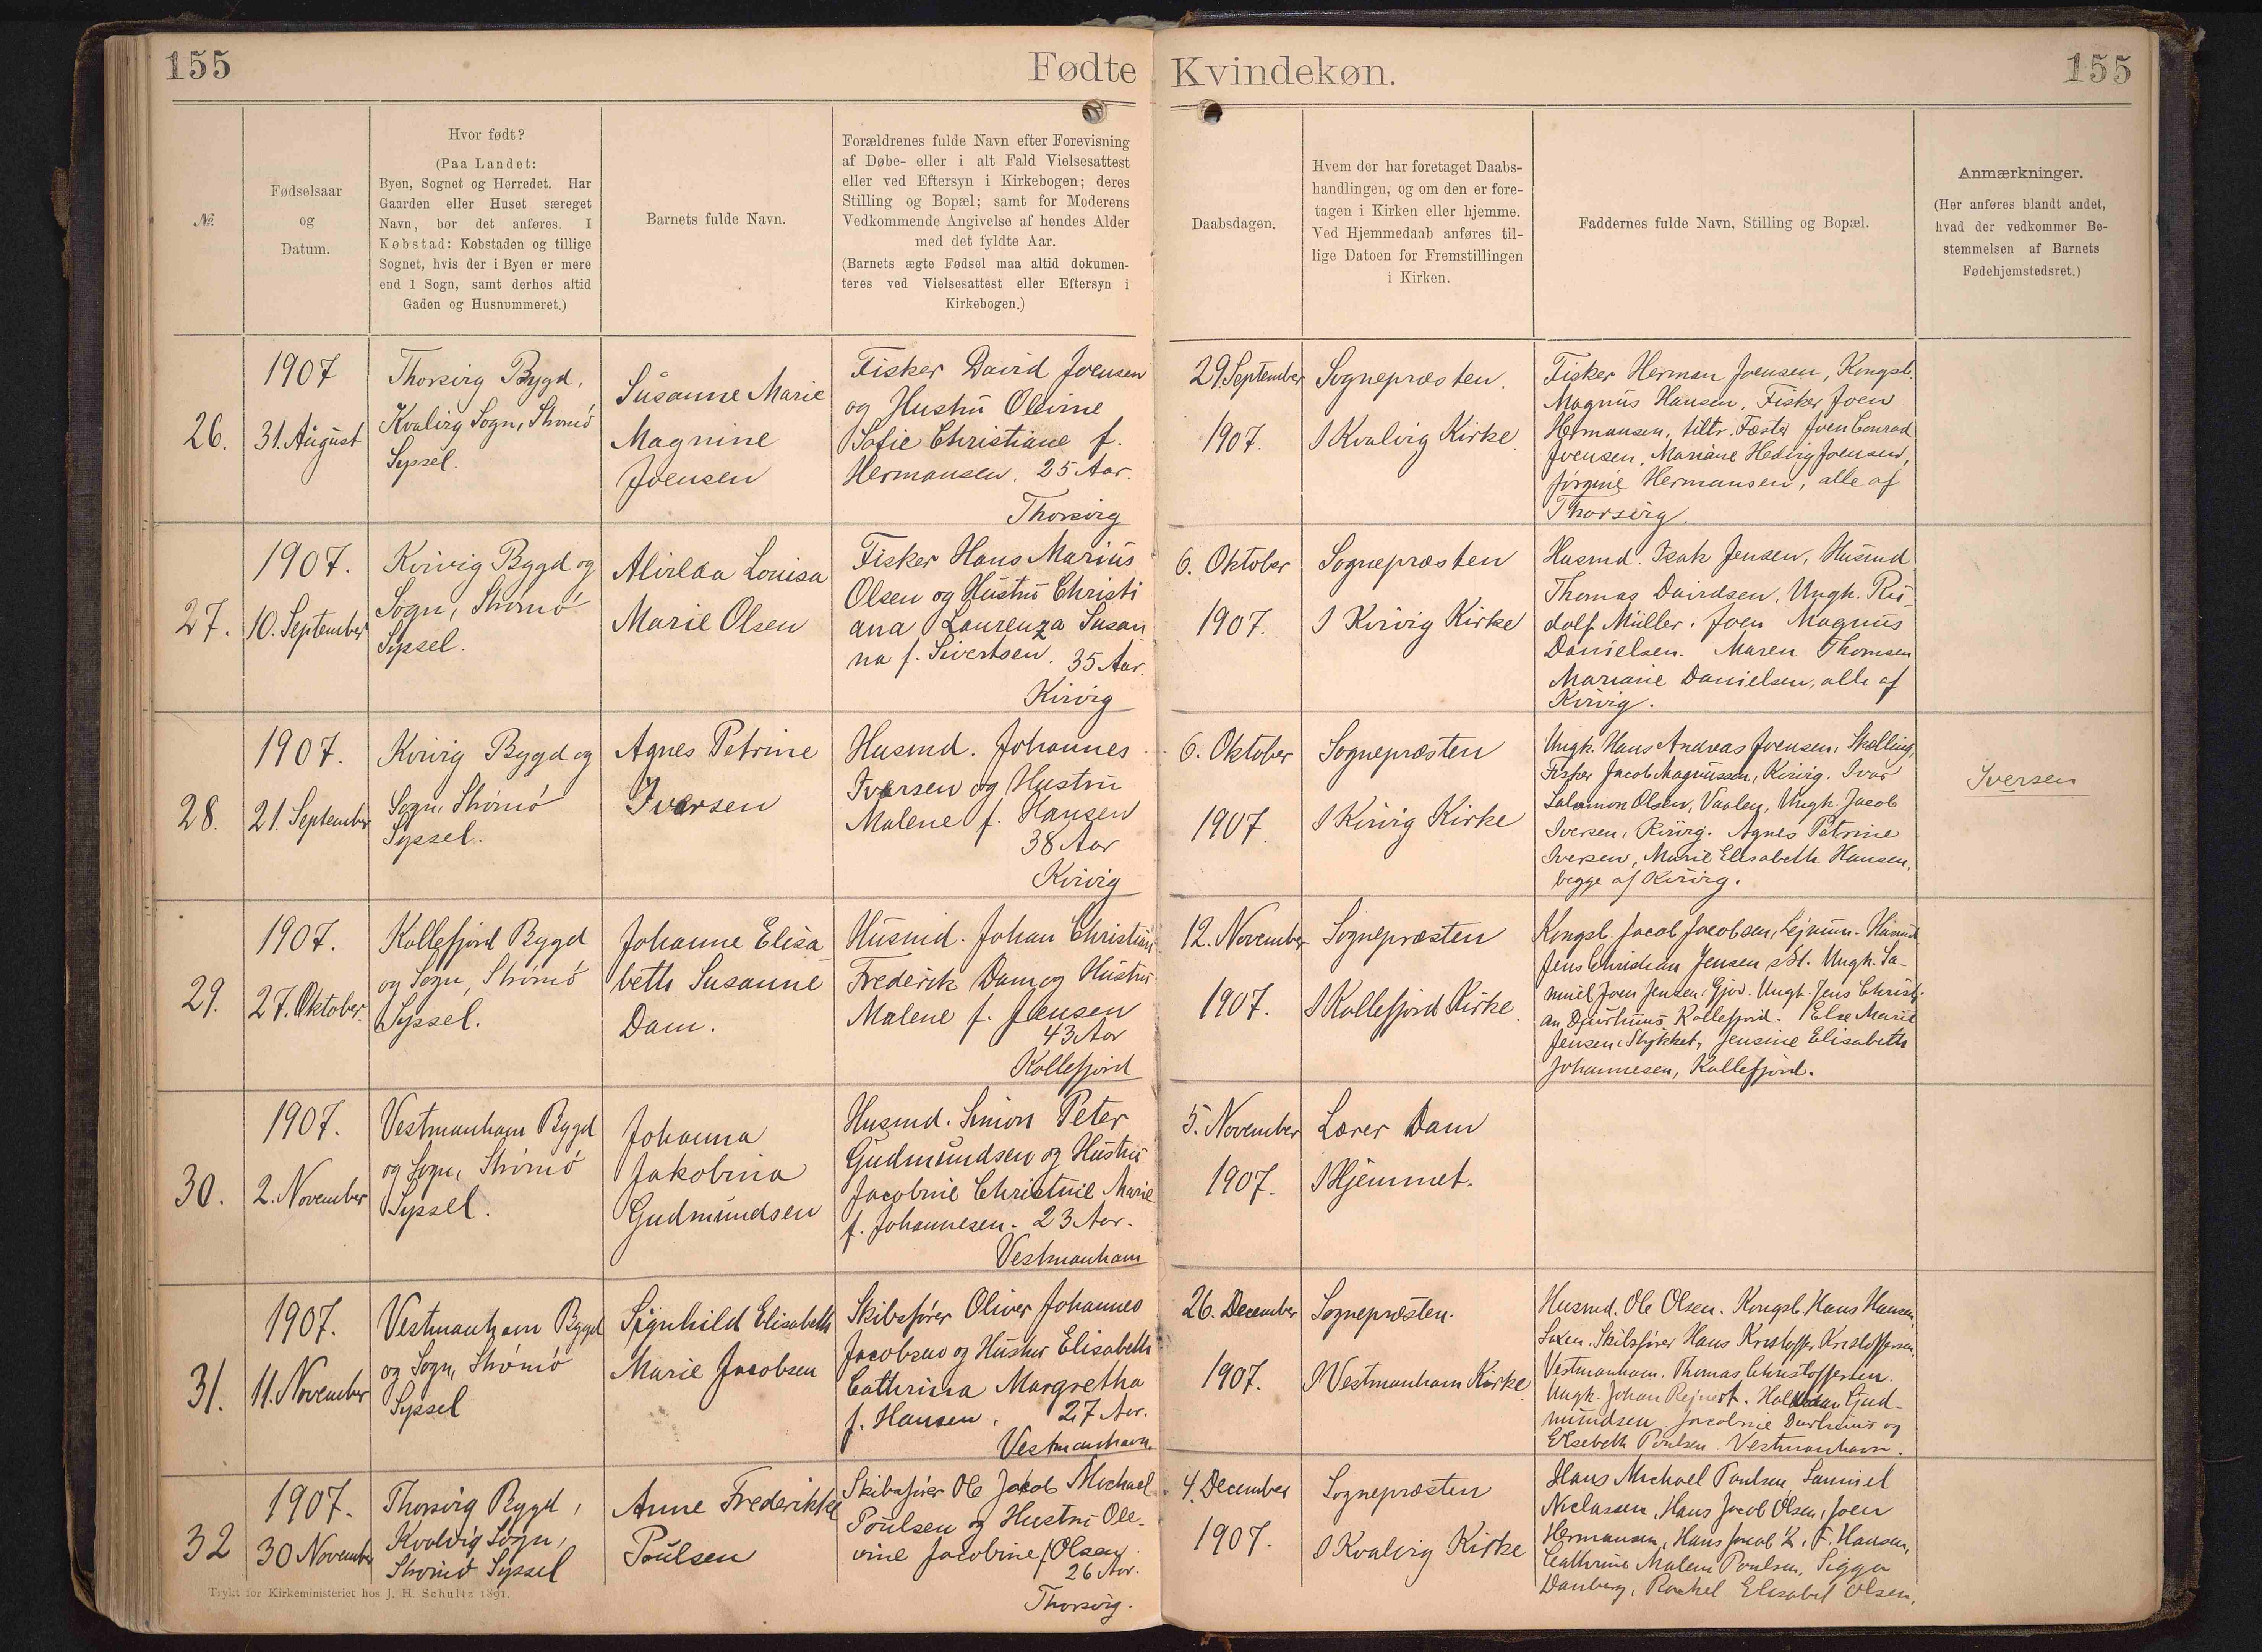 155
Fødte
Kvindekøn.
155
№
Fødselsaar
og
Datum.
Hvor født?
(Paa Landet:
Byen, Sognet og Herredet. Har
Gaarden eller Huset særeget
Navn, bør det anføres. I
Købstad: Købstaden og tillige
Sognet, hvis der i Byen er mere
end 1 Sogn, samt derhos altid
Gaden og Husnummeret.)
Barnets fulde Navn.
Forældrenes fulde Navn efter Forevisning
af Døbe- eller i alt Fald Vielsesattest
eller ved Eftersyn i Kirkebogen; deres
Stilling og Bopæl; samt for Moderens
Vedkommende Angivelse af hendes Alder
med det fyldte Aar.
(Barnets ægte Fødsel maa altid dokumen-
teres ved Vielsesattest eller Eftersyn i
Kirkebogen.)
Daabsdagen.
Hvem der har foretaget Daabs-
handlingen, og om den er fore-
tagen i Kirken eller hjemme.
Ved Hjemmedaab anføres til-
lige Datoen for Fremstillingen
i Kirken.
Faddernes fulde Navn, Stilling og Bopæl.
Anmærkninger.
(Her anføres blandt andet,
hvad der vedkommer Be-
stemmelsen af Barnets
Fødehjemstedsret.)
26.
1907
31. August
Thorsvig Bygd,
Kvalvig Sogn, Strømø
Syssel.
Susanne Marie
Magnine
Joensen
Fisker David Joensen
og Hustru Olevine
Sofie Christiane f.
Hermansen. 25 Aar.
Thorsvig
29. September
1907.
Sognepræsten.
I Kvalvig Kirke
Fisker Herman Joensen, Kongsb.
Magnus Hansen, Fisker Joen
Hermansen, tiltr. Fæster Joen Conrad
Joensen, Mariane Hedvig Joensen,
Jørgine Hermansen, alle af
Thorsvig.
27.
1907.
10. September
Kvivig Bygd og
Sogn, Strømø
Syssel.
Alvilda Louisa
Marie Olsen
Fisker Hans Marius
Olsen og Hustru Christi
ana Laurenza Susan
na f. Sivertsen. 35 Aar.
Kvivig
6. Oktober
1907.
Sognepræsten
I Kvivig Kirke
Husmd. Isak Jensen, Husmd
Thomas Davidsen, Ungk. Ru-
dolf Müller, Joen Magnus
Danielsen. Maren Thomsen
Mariane Danielsen, alle af
Kvivig.
28.
1907.
21. September
Kvivig Bygd og
Sogn, Strømø
Syssel.
Agnes Petrine
Iversen
Husmd. Johannes
Iversen og Hustru
Malene f. Hansen
38 Aar
Kvivig
6. Oktober
1907.
Sognepræsten
I Kvivig Kirke
Ungk. Hans Andreas Joensen, Skælling,
Fisker Jacob Magnussen, Kvivig. Ivar
Salamon Olsen, Vaalen, Ungk. Jacob
Iversen, Kvivig. Agnes Petrine
Iversen, Marie Elisabeth Hansen,
begge af Kvivig.
Iversen
29.
1907.
27. Oktober.
Kollefjord Bygd
og Sogn, Strømø
Syssel.
Johanne Elisa
beth Susanne
Dam.
Husmd. Johan Christian
Frederik Dam og Hustru
Malene f. Jensen
43 Aar
Kollefjord
12. November
1907.
Sognepræsten
I Kollefjord Kirke.
Kongsb. Jacob Jacobsen, Lejnum. Husmd
Jens Christian Jensen, sst. Ungk. Sa-
muel Joen Jensen, Gjov. Ungk. Jens Christi-
an Djurhuus Kollefjord. Else Marie
Jensen, Stykket, Jensine Elisabeth
Johannesen, Kollefjord.
30.
1907.
2. November
Vestmanhavn Bygd
og Sogn, Strømø
Syssel.
Johanna
Jakobina
Gudmundsen
Husmd. Simon Peter
Gudmundsen og Hustru
Jacobine Christine Marie
f. Johannesen. 23 Aar.
Vestmanhavn
5. November
1907.
Lærer Dam
I Hjemmet.
31.
1907.
11. November
Vestmanhavn Bygd
og Sogn, Strømø
Syssel
Signhild Elisabeth
Marie Jacobsen
Skibsfører Oliver Johannes
Jacobsen og Hustru Elisabeth
Cathrina Margretha
f. Hansen, 27 Aar.
Vestmanhavn.
26. December
1907.
Sognepræsten.
I Vestmanhavn Kirke
Husmd. Ole Olsen. Kongsb. Hans Hansen,
Saxen. Skibsfører Hans Kristoffer Kristoffersen,
Vestmanhavn. Thomas Christoffersen.
Ungk. Johan Rejnert. Gud-
mundsen, Jacobine Durhuus og
Elsebeth Poulsen. Vestmanhavn.
32
1907.
30 November
Thorsvig Bygd,
Kvalvig Sogn,
Strømø Syssel
Anne Frederikke
Poulsen
Skibsfører Ole Jakob Michael
Poulsen og Hustru Ole-
vine Jacobine f. Olsen.
26 Aar.
Thorsvig.
4. December
1907.
Sognepræsten
I Kvalvig Kirke
Hans Michael Poulsen, Samuel
Niclassen, Hans Jacob Olsen, Joen
Hermansen, Hans Jacob L. F. Hansen,
Cathrine Malene Poulsen, Sigga
Danberg, Rachel Elisabet Olsen,
Trykt for Kirkeministeriet hos J. H. Schultz 1891.